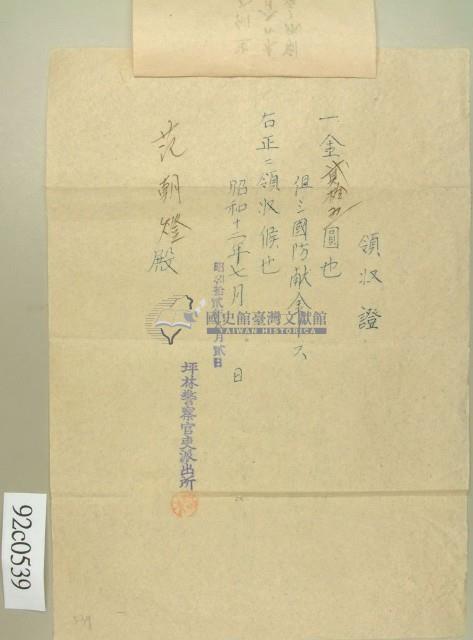 領収證
一金貳拾圓也
但シ國防献金
右正ニ領収候也
昭和十二年七月 日
昭和拾貳年 月貳日
坪林警察官吏派出所
范朝燈殿
國史館臺灣文獻館
TAIWAN HISTORICA
92c0539
539